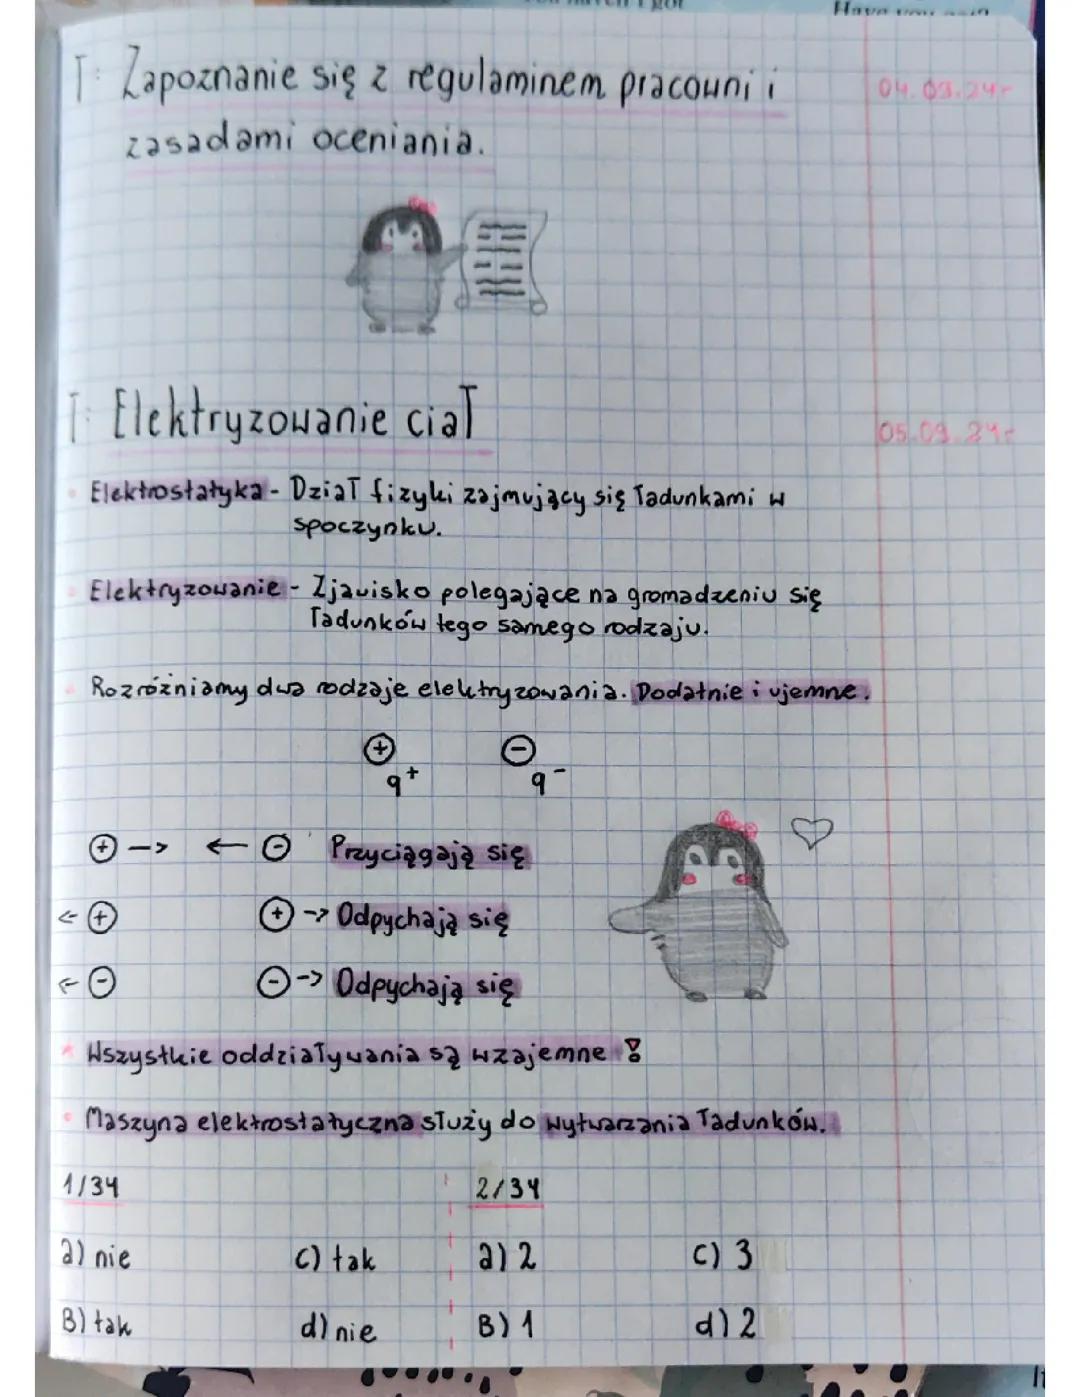 T: Zapoznanie się z regulaminem pracowni i 04.09.24r
zasadami oceniania.
T: Elektryzowanie ciał 05.09.24r
• Elektrostatyka - Dział fizyki zajmujący się ładunkami w
spoczynku.
• Elektryzowanie - Zjawisko polegające na gromadzeniu się
ładunków tego samego rodzaju.
• Rozróżniamy dwa rodzaje elektryzowania. Dodatnie i ujemne.
+ −
q+ q-
+ -> <- − Przyciągają się
<- + + -> Odpychają się
<- − − -> Odpychają się
* Wszystkie oddziaływania są wzajemne !
• Maszyna elektrostatyczna służy do wytwarzania ładunków.
1/34 2/34
a) nie c) tak a) 2 c) 3
B) tak d) nie B) 1 d) 2